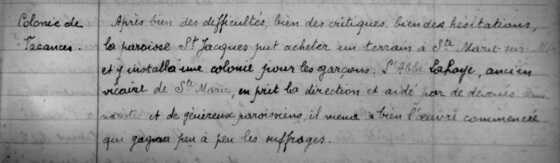 Colonie de
Vacances.
Après bien des difficultés, bien des critiques, bien des hésitations,
la paroisse St Jacques put acheter un terrain à Ste Marie sur
et y installa une colonie pour les garçons. L'Abbé Lahaye, ancien
vicaire de Ste Marie, en prit la direction et aidé par de dévoués
et de généreux paroissiens, il mena à bien l'œuvre commencée
qui gagna peu à peu les suffrages.